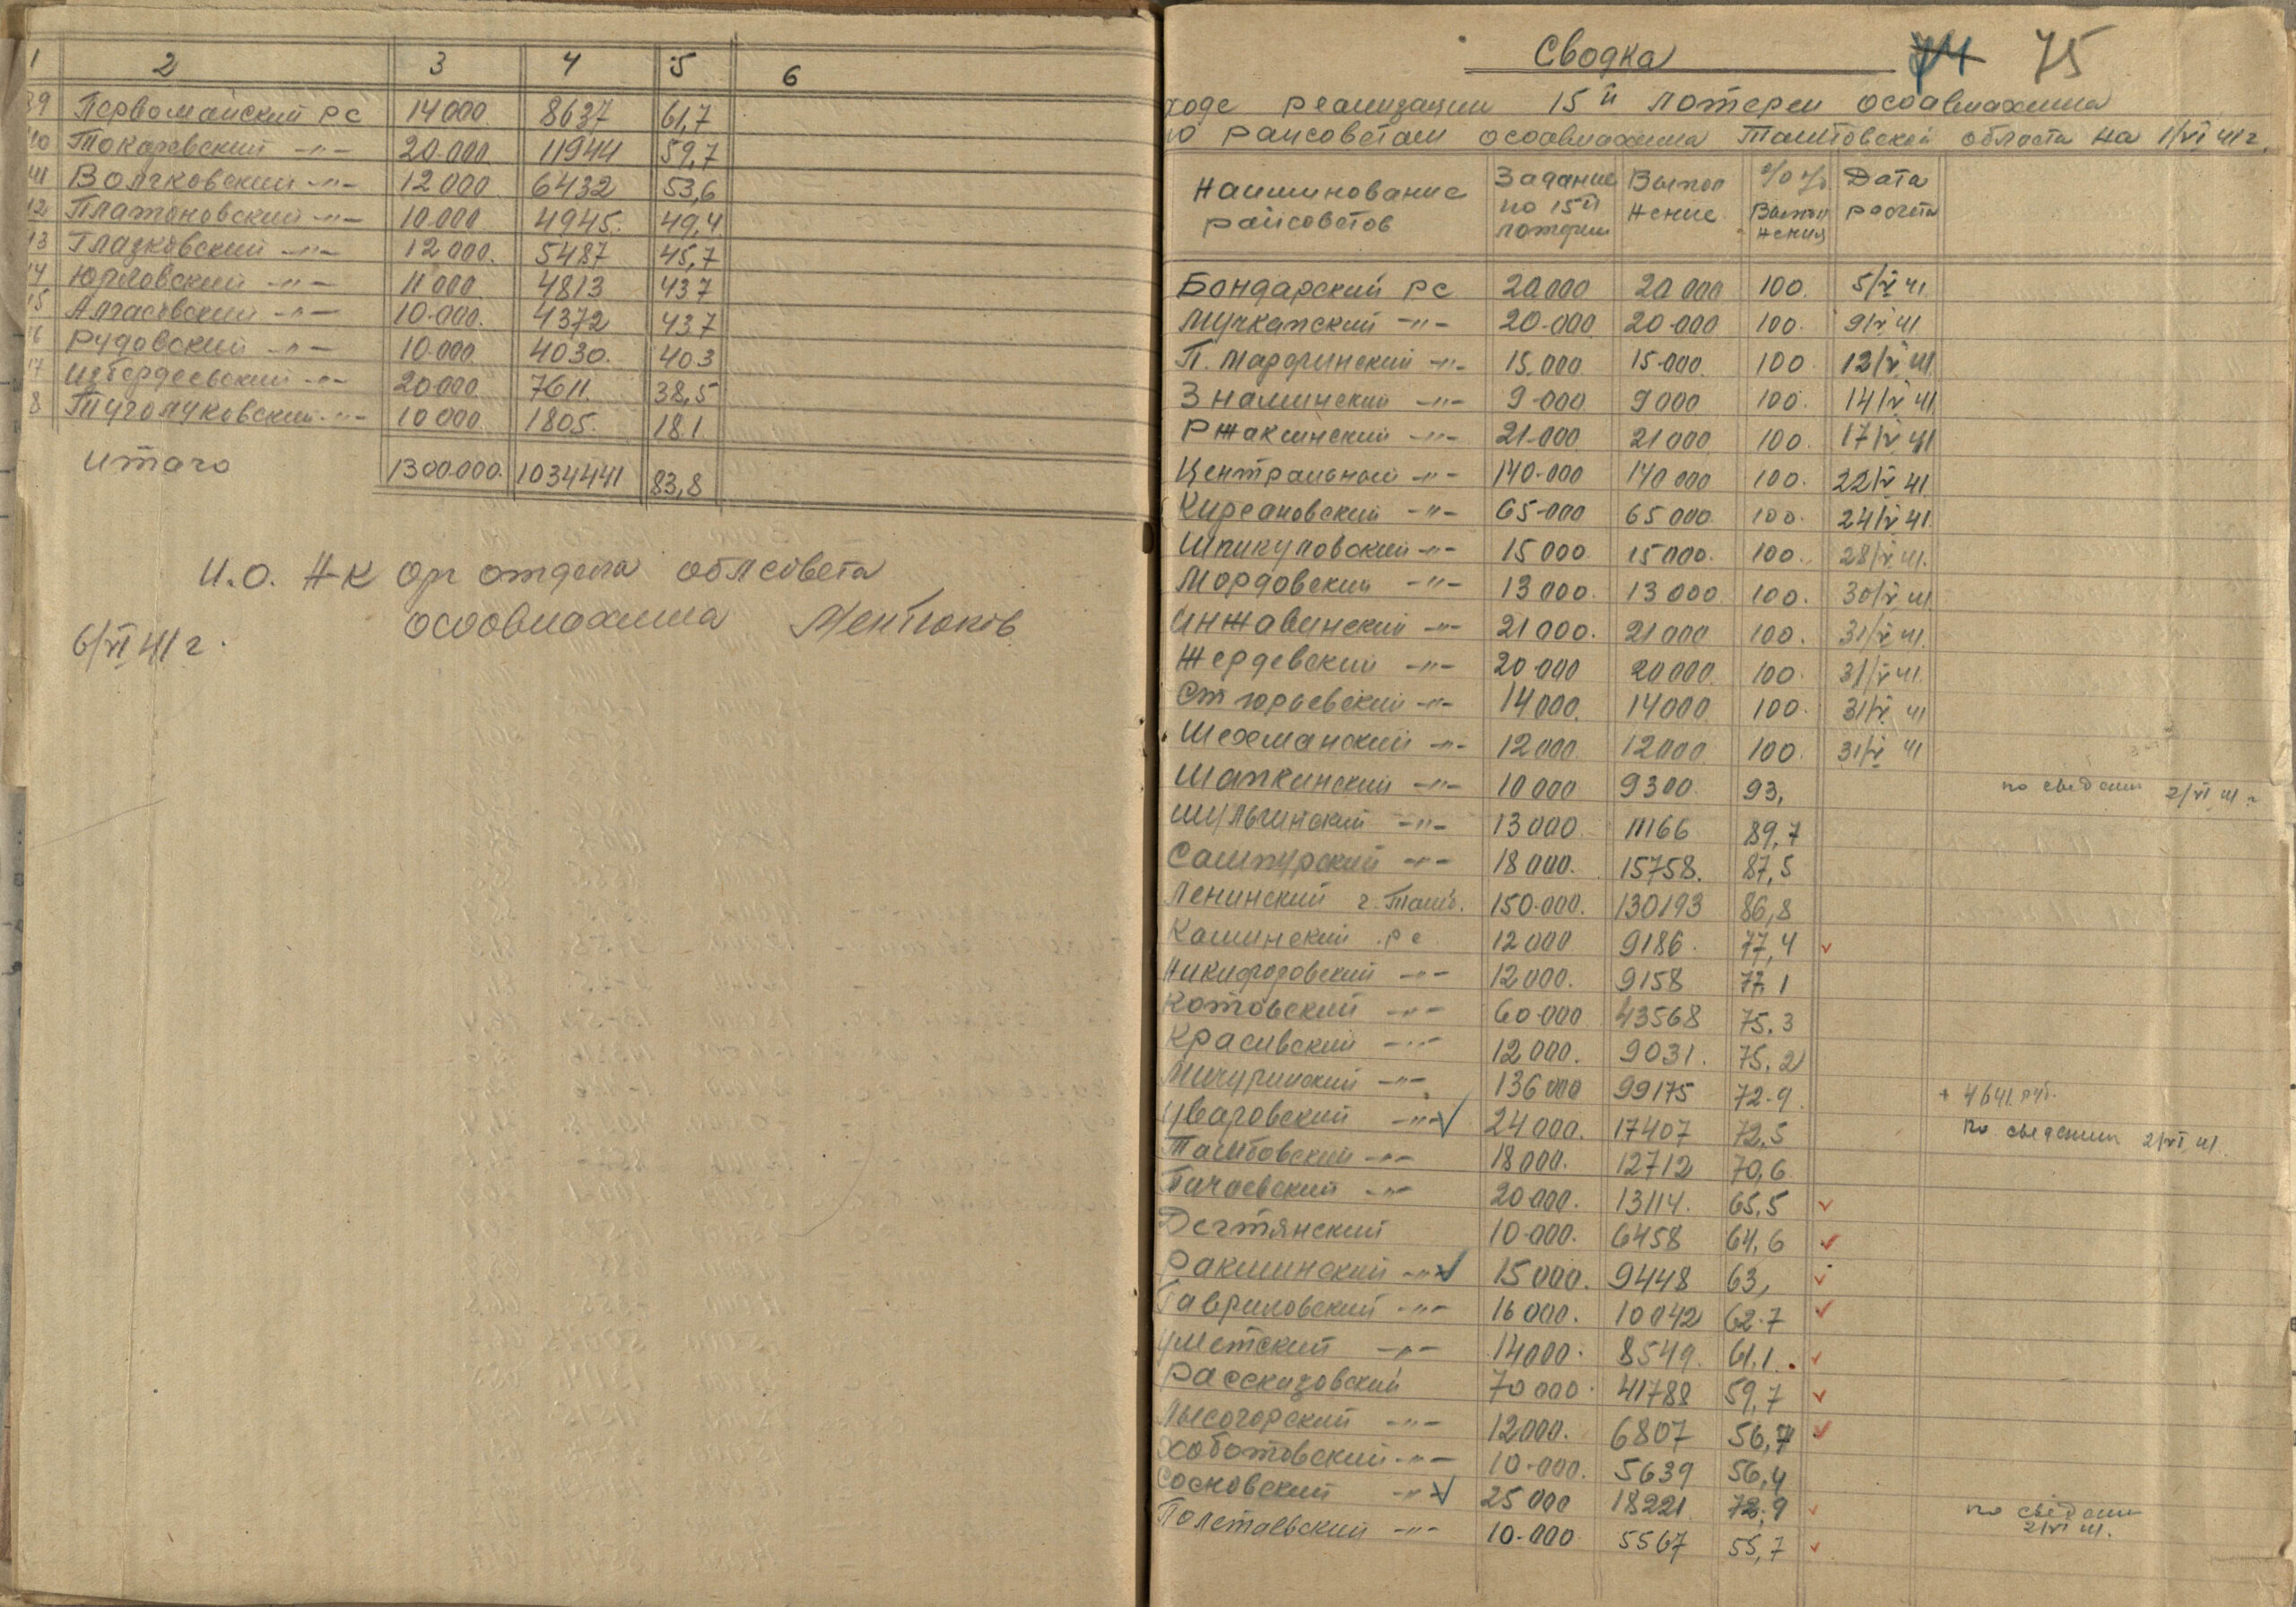 1 2 3 4 5 6
39 Первомайский рс 14000. 8637 61,7
40 Токаревский -"- 20.000. 11944 59,7
41 Волчковский -"- 12 000 6432 53,6
42 Платоновский -"- 10.000. 4945. 49,4
43 Глазковский -"- 12 000. 5487 45,7
44 Юрловский -"- 11 000 4813 43 7
45 Алгасовский -"- 10.000. 4372 43 7
46 Рудовский -"- 10.000. 4030. 40 3
47 Избердеевский -"- 20000. 7611. 38,5
48 Туголуковский -"- 10 000. 1805. 18.1.
Итого 1300.000. 1034441 83,8
И.О. Н-К орг отдела облсовета
осоавиахима
6/VI 41 г.
Сводка 74 75
ходе реализации 15й лотереи осоавиахима
по райсоветам осоавиахима Тамбовской области на 1/VI 41 г.
Наиминование райсоветов Задание по 15й лотереи Выпол нение % % Выпол нения Дата расчета
Бондарский рс 20000 20 000 100. 5/V 41
Мучкапский -"- 20.000 20.000 100. 9/V 41
П. Марфинский -"- 15.000 15.000. 100 12/V 41
Знаминский -"- 9.000 9000 100. 14/V 41
Ржаксинский -"- 21.000 21000 100. 17/V 41
Центральный -"- 140.000 140 000 100. 22/V 41
Кирсановский -"- 65.000 65 000. 100. 24/V 41
Шпикуловский -"- 15 000. 15000. 100. 28/V 41.
Мордовский -"- 13 000. 13 000 100. 30/V 41
Инжавинский -"- 21 000. 21 000 100. 31/V 41
Жердевский -"- 20 000 20 000. 100. 31/V 41.
Ст юрьевский -"- 14000. 14000 100. 31/V 41
Шехманский -"- 12 000 12000 100. 31/V 41
Шапкинский -"- 10 000 9300. 93, по сведении 2/VI 41 г
Шульгинский -"- 13 000. 11166 89,7
Сампурский -"- 18 000. 15758. 87,5
Ленинский г. Тамб. 150.000. 130193 86,8
Каминский рс 12 000 9186. 77,4
Никифоровский -"- 12 000. 9158 77. 1
Котовский -"- 60.000 43568 75. 3
Красивский -"- 12 000. 9031. 75. 2
Мичуринский -"- 136 000 99175 72.9. + 4641 руб.
Уваровский -"- 24 000. 17407 72,5 по сведении 2/VI 41
Тамбовский -"- 18 000. 12712 70,6
Пичаевский -"- 20 000. 13114. 65,5
Дегтянский 10.000. 6458 64,6
Ракшинский -"- 15 000. 9448 63,
Гавриловский -"- 16 000. 10042 62.7
Уметский -"- 14000. 8549. 61,1.
Рассказовский 70 000. 41788 59,7
Лысогорский -"- 12000. 6807 56,7
Хоботовский -"- 10.000. 5639 56,4
Сосновский -"- 25 000 18221. 72,9 по сведении 2/VI 41.
Полетаевский -"- 10.000 5567 55,7